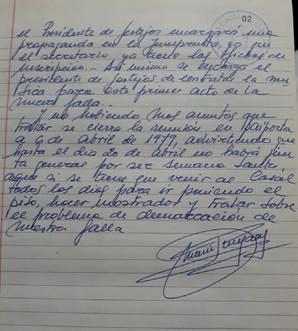 02
el Presidente de festejos encargará una
propaganda en la Imprenta, ya que
el secretario ya tiene las fichas de
inscripción.- Así mismo se encarga el
presidente de festejos de contratar la mu-
sica para este primer acto de la
nueva falla.
Y no habiendo mas asuntos que
tratar se cierra la reunión en Paiporta
a 6 de Abril de 1979, advirtiendo que
hasta el día de Abril no habrá jun-
ta general por ser semana Santa
aquí si se tiene que venir al Casal
todos los días para ir poniendo el
piso, hacer mostrador y tratar sobre
el problema de demarcación de
nuestra falla